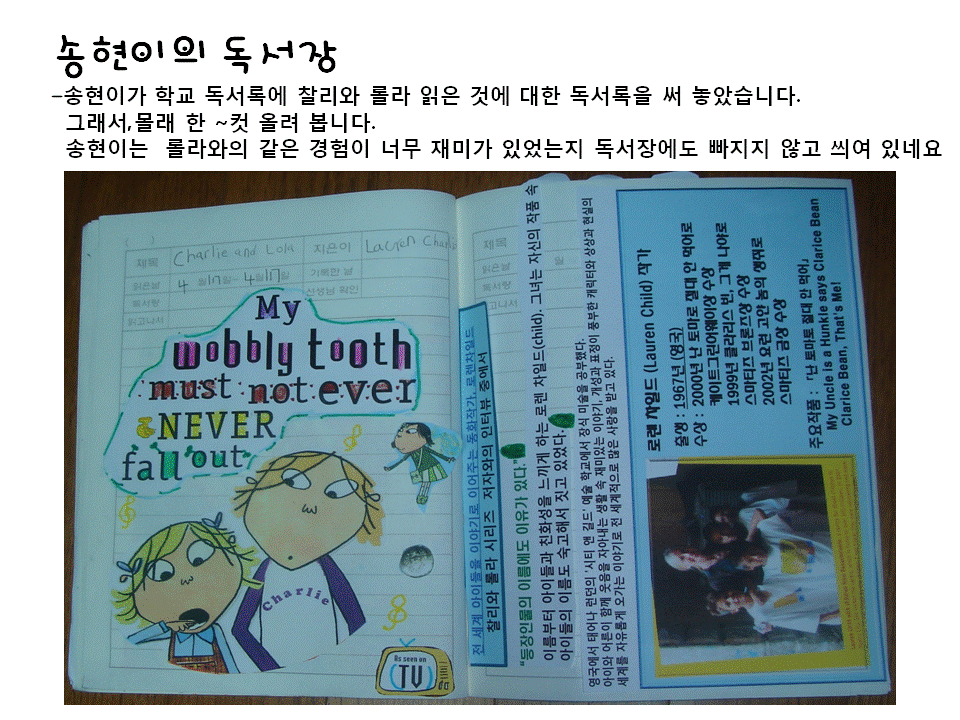 송현이의 독서장
-송현이가 학교 독서록에 찰리와 롤라 읽은 것에 대한 독서록을 써 놓았습니다.
그래서,몰래 한 ~컷 올려 봅니다.
송현이는 롤라와의 같은 경험이 너무 재미가 있었는지 독서장에도 빠지지 않고 씌여 있네요
제목 Charlie and Lola 지은이 Lauren Charlie
읽은날 4월17일~ 4월17일 기록한 날
독서량 선생님 확인
읽고나서
My
wobbly tooth
must not ever
NEVER
fall out
Charlie
As seen on
TV
제목
읽은날 월
독서량
읽고나서
전 세계 아이들을 이야기로 이어주는 동화작가, 로렌차일드
찰리와 롤라 시리즈 저자와의 인터뷰 중에서
"등장인물의 이름에도 이유가 있다."
이름부터 아이들과 친화성을 느끼게 하는 로렌 차일드(child). 그녀는 자신의 작품 속
아이들의 이름도 숙고해서 짓고 있었다.
영국에서 태어나 런던의 '시티 앤 길드' 예술 학교에서 장식 미술을 공부했다.
아이와 어른이 함께 웃음을 자아내는 생활 속 재미있는 이야기, 개성과 표정이 풍부한 캐릭터와 상상과 현실의
세계를 자유롭게 오가는 이야기로 전 세계적으로 많은 사랑을 받고 있다.
로렌 차일드 (Lauren Child) 작가
출생 : 1967년 (영국)
수상 : 2000년 난 토마토 절대 안 먹어로
케이트그린어웨이상 수상
1999년 클라리스 빈, 그게 나야로
스마티즈 브론즈상 수상
2002년 요런 고얀 놈의 생쥐로
스마티즈 금상 수상
주요작품 : 「난 토마토 절대 안 먹어」
My Uncle is a Hunkle says Clarice Bean
Clarice Bean, That's Me!